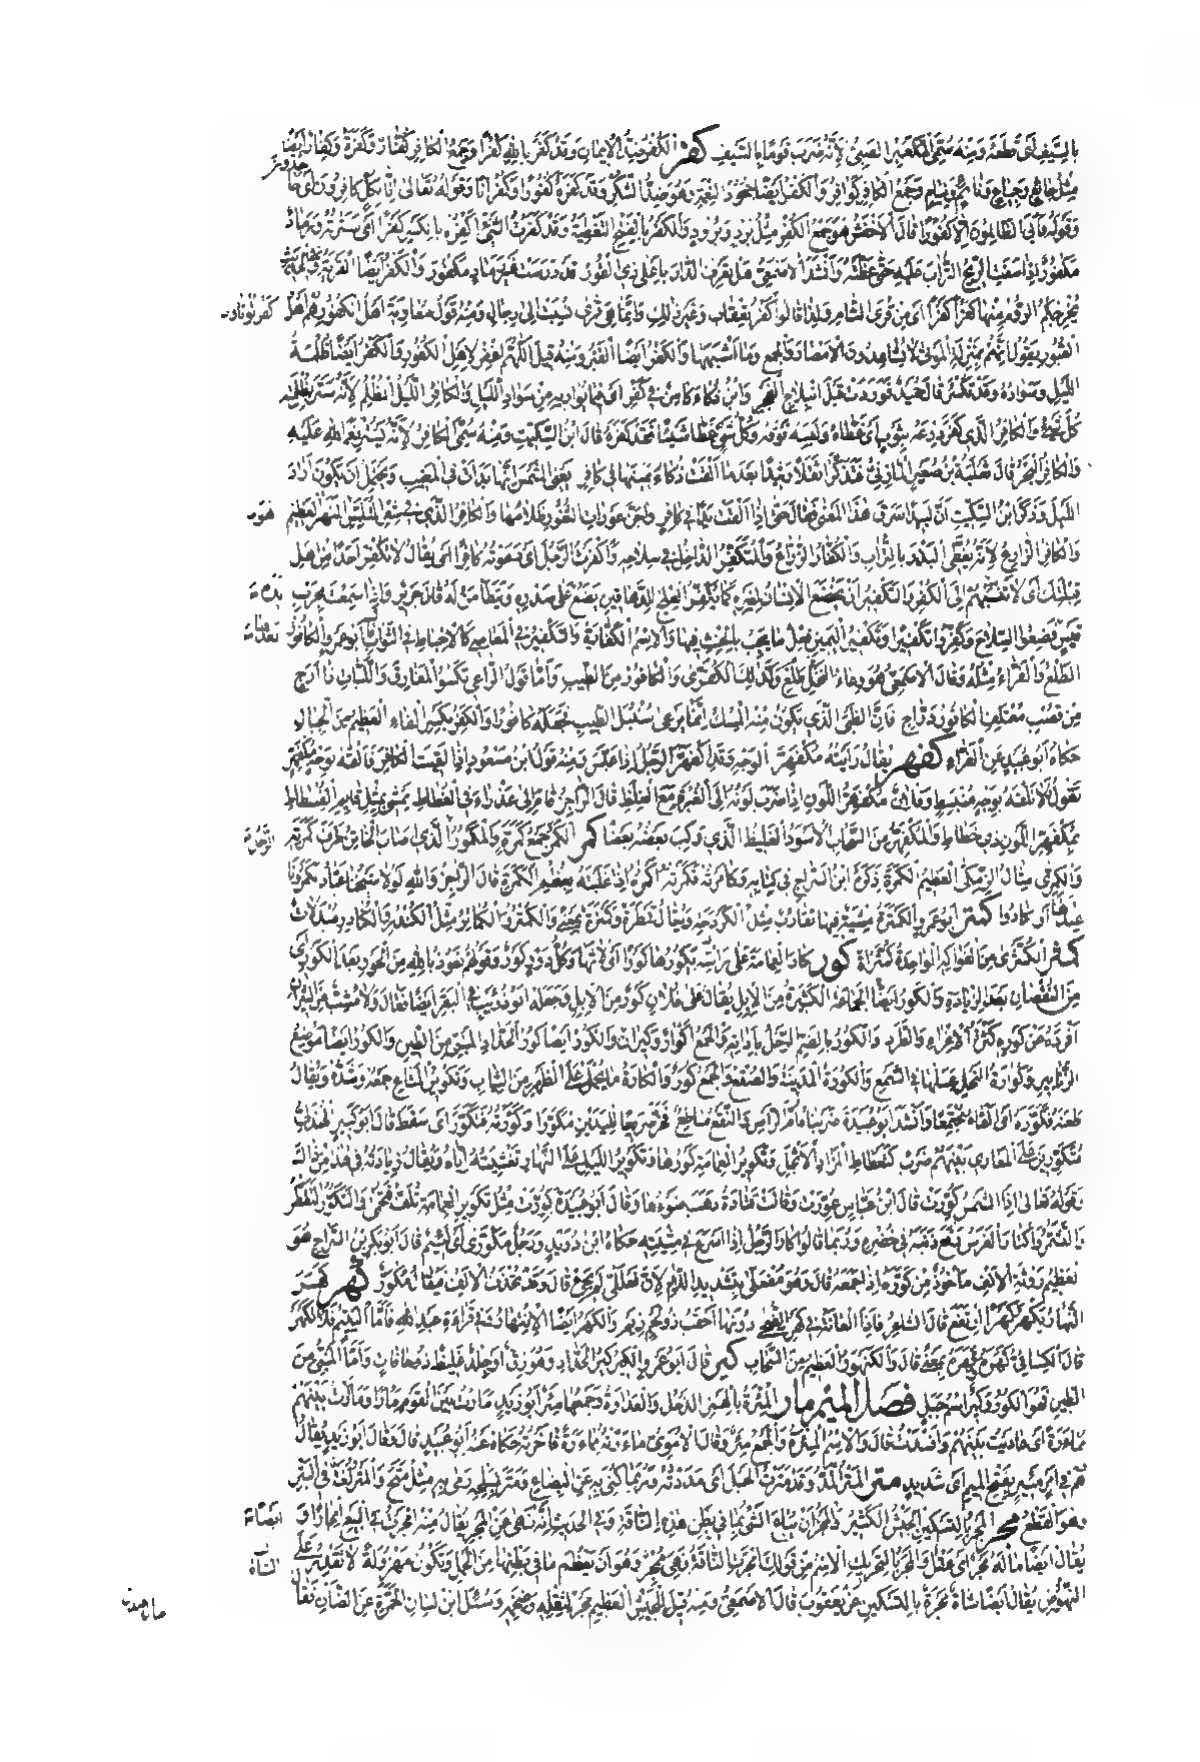 بالسيف أي قطعه ومنه سمي المكعبر الضبي لأنه ضرب قوما بالسيف كفر الكفر ضد الإيمان وقد كفر بالله كفرا وجمع الكافر كفار وكفرة وكفار أيضا
مثل جائع وجياع ونائم ونيام وجمع الكافرة كوافر والكفر أيضا جحود النعمة وهو ضد الشكر وقد كفره كفورا وكفرانا وقوله تعالى إنا بكل كافرون
وقوله فأبى الظالمون إلا كفورا قال الأخفش هو جمع الكفر مثل برد وبرود والكفر بالفتح التغطية وقد كفرت الشيء أكفره بالكسر كفرا أي سترته ورماد
مكفور إذا سفت الريح التراب عليه حتى غطته وأنشد الأصمعي هل تعرف الدار بأعلى ذي القور قد درست غير رماد مكفور والكفر أيضا القرية وفي الحديث
يخرجكم الروم منها كفرا كفرا أي من قرى الشام ولذا قالوا كفر تعقاب وغير ذلك وإنما هي قرى نسبت إلى رجال ومنه قول معاوية أهل الكفور هم أهل
القبور يقول إنهم بمنزلة الموتى لا يشاهدون الأمصار والجمع وما أشبهها والكفر أيضا القبر ومنه قيل اللهم اغفر لأهل الكفور والكفر أيضا ظلمة
الليل وسواده وقد تكسر قال حميد فوردت قبل انبلاج الفجر وابن ذكاء كامن في كفر أي فيما يواريه من سواد الليل والكافر الليل المظلم لأنه ستر بظلمته
كل شيء والكافر الذي كفر درعه بثوب أي غطاه ولبسه فوقه وكل شيء غطى شيئا فقد كفره قال ابن السكيت ومنه سمي الكافر لأنه يستر نعم الله عليه
والكافر البحر قال ثعلبة بن صعير المازني فتذكرا ثقلا رثيدا بعدما ألقت ذكاء يمينها في كافر يعني الشمس أنها بدأت في المغيب ويحتمل أن يكون أراد
الليل وذكر ابن السكيت أن لبيدا سرق هذا المعنى فقال حتى إذا ألقت يدا في كافر وأجن عورات الثغور ظلامها والكافر الذي في شعر المتلمس النهر العظيم
والكافر الزارع لأنه يغطي البذر بالتراب والكفار الزراع والمتكفر الداخل في سلاحه وأكفرت الرجل أي دعوته كافرا أي يقال لا تكفر أحدا من أهل
قبلتك أي لا تنسبهم إلى الكفر والتكفير أن يخضع الإنسان لغيره كما يكفر العلج للدهاقين يضع على صدره ويتطامن له قال جرير وإذا سمعت بحرب
قيس بعدها فضعوا السلاح وكفروا تكفيرا وتكفير اليمين فعل ما يجب بالحنث فيها والاسم الكفارة والتكفير في المعاصي كالإحباط في الثواب أبو عمرو الكافور
الطلع والفراء مثله وقال الأصمعي هو وعاء النخل طلع وكذلك الكفرى والكافور من الطيب وأما قول الراعي تكسو المفارق واللبات ذا أرج
من قصب معتلف الكافور دراج فإن الظبي الذي يكون منه المسك إنما يرعى سنبل الطيب فجعله كافورا والكفر بكسر الفاء العظيم من الجبال
حكاه أبو عبيد عن الفراء كفهر يقال رأيته مكفهر الوجه وقد اكفهر الرجل إذا عبس ومنه قول ابن مسعود إذا لقيت الكافر فالقه بوجه مكفهر
تقول لا تلقه بوجه منبسط وفلان مكفهر اللون إذا ضرب لونه إلى الغبرة مع الغلظ قال الراجز قام إلى عذراء في الغطاط يمشي بمثل قائم الفسطاط
بمكفهر اللون ذي حطاط والمكفهر من السحاب الأسود الغليظ الذي ركب بعضه بعضا كمر الكمر جمع كمرة والمكمور الذي أصاب الخاتن طرف كمرته
والكمرى مثال الزمكى العظيم الكمرة ذكره ابن السراج في كتابه وكامرته فكمرته أكمره إذا غلبته بعظم الكمرة قال الراجز والله لولا شيخنا عباد لكمرونا
عندها أو كادوا كمتر أبو عمرو الكمترة مشية فيها تقارب مثل الكردحة ويقال قمطرة وكمترة بمعنى والكمتر والكماتر مثل الكندر والكنادر مبدلات
كمثر الكمثرى من الفواكه الواحدة كمثراة كور كار العمامة على رأسه يكورها كورا أي لاثها وكل دور كور وقولهم نعوذ بالله من الحور بعد الكور أي
من النقصان بعد الزيادة والكور أيضا الجماعة الكثيرة من الإبل يقال على فلان كور من الإبل وجعله أبو ذؤيب في البقر أيضا فقال ولا مشب من الثيران
أفرده عن كوره كثرة الإغراء والطرد والكور بالضم الرحل بأداته والجمع أكوار وكيران والكور أيضا كور الحداد المبني من الطين والكور أيضا موضع
الزنابير وكوارة النحل عسلها في الشمع والكورة المدينة والصقع والجمع كور والكارة ما يحمل على الظهر من الثياب وتكوير المتاع جمعه وشده ويقال
طعنه فكوره أي ألقاه مجتمعا وأنشد أبو عبيدة ضربناه أم الرأس والنقع ساطع فخر صريعا لليدين مكورا وكورته فتكور أي سقط قال أبو كبير الهذلي
متكورين على المعاري بينهم ضرب كتعطاط المزاد الأثجل وتكوير العمامة كورها وتكوير الليل على النهار تغشيته إياه ويقال زيادته في هذا من ذلك
وقوله تعالى إذا الشمس كورت قال ابن عباس غورت وقالت قتادة ذهب ضوءها وقال أبو عبيدة كورت مثل تكوير العمامة تلف فتمحى والتكور التقطر
والتشمر واكتار الفرس رفع ذنبه في حضره وربما قالوا كار الرجل إذا أسرع في مشيته حكاه ابن دريد ورجل مكورى أي لئيم قال أبو بكر بن السراج هو
العظيم روثة الأنف مأخوذ من كوره إذا جمعه قال وهو مفعلى بتشديد اللام لأن فعللى لم يجئ قال وقد تحذف الألف فيقال مكور كهر كهر
النهار يكهر كهرا ارتفع قال الشاعر فإذا العانة في كهر الضحى دونها أحقب ذو لحم زيم والكهر أيضا الانتهار وفي قراءة عبد الله فأما اليتيم فلا تكهر
قال الكسائي كهره وقهره بمعنى قال والكنهور العظيم من السحاب كير قال أبو عمرو الكير كير الحداد وهو زق أو جلد غليظ ذو حافات وأما المبني من
الطين فهو الكور وكير اسم جبل فصل الميم مأر المئرة بالهمز الذحل والعداوة وجمعها مئر أبو زيد مأرت بين القوم مأرا وماءرت بينهم
مماءرة أي عاديت بينهم وأفسدت قال والاسم المئرة والجمع مئر وقال الأموي ماءرته مماءرة فاخرته حكاه عنه أبو عبيد قال فقال أبو زيد يقال
هم في أمر مئير بفتح الميم أي شديد متر المتر المد وقد مترت الحبل أي مددته وربما كني به عن البضاع ومتر بسلحه رمى به مثل متح والمتر لغة في البتر
وهو القطع مجر المجر بالتسكين الجيش الكثير والمجر أن يباع الشيء بما في بطن هذه الناقة وفي الحديث أنه نهى عن المجر يقال منه أمجرت في البيع إمجارا و
يقال أيضا ما له مجر أي عقل والمجر بالتحريك الاسم من قولك أمجرت الناقة وهي ممجر وهو أن يعظم ما في بطنها من الحمل وتكون مهزولة لا تقدر على
النهوض يقال أيضا شاة مجرة بالتسكين عن يعقوب قال الأصمعي ومنه قيل للجيش العظيم مجر لثقله وضخمه وسئل ابن لسان الحمرة عن الضأن فقال